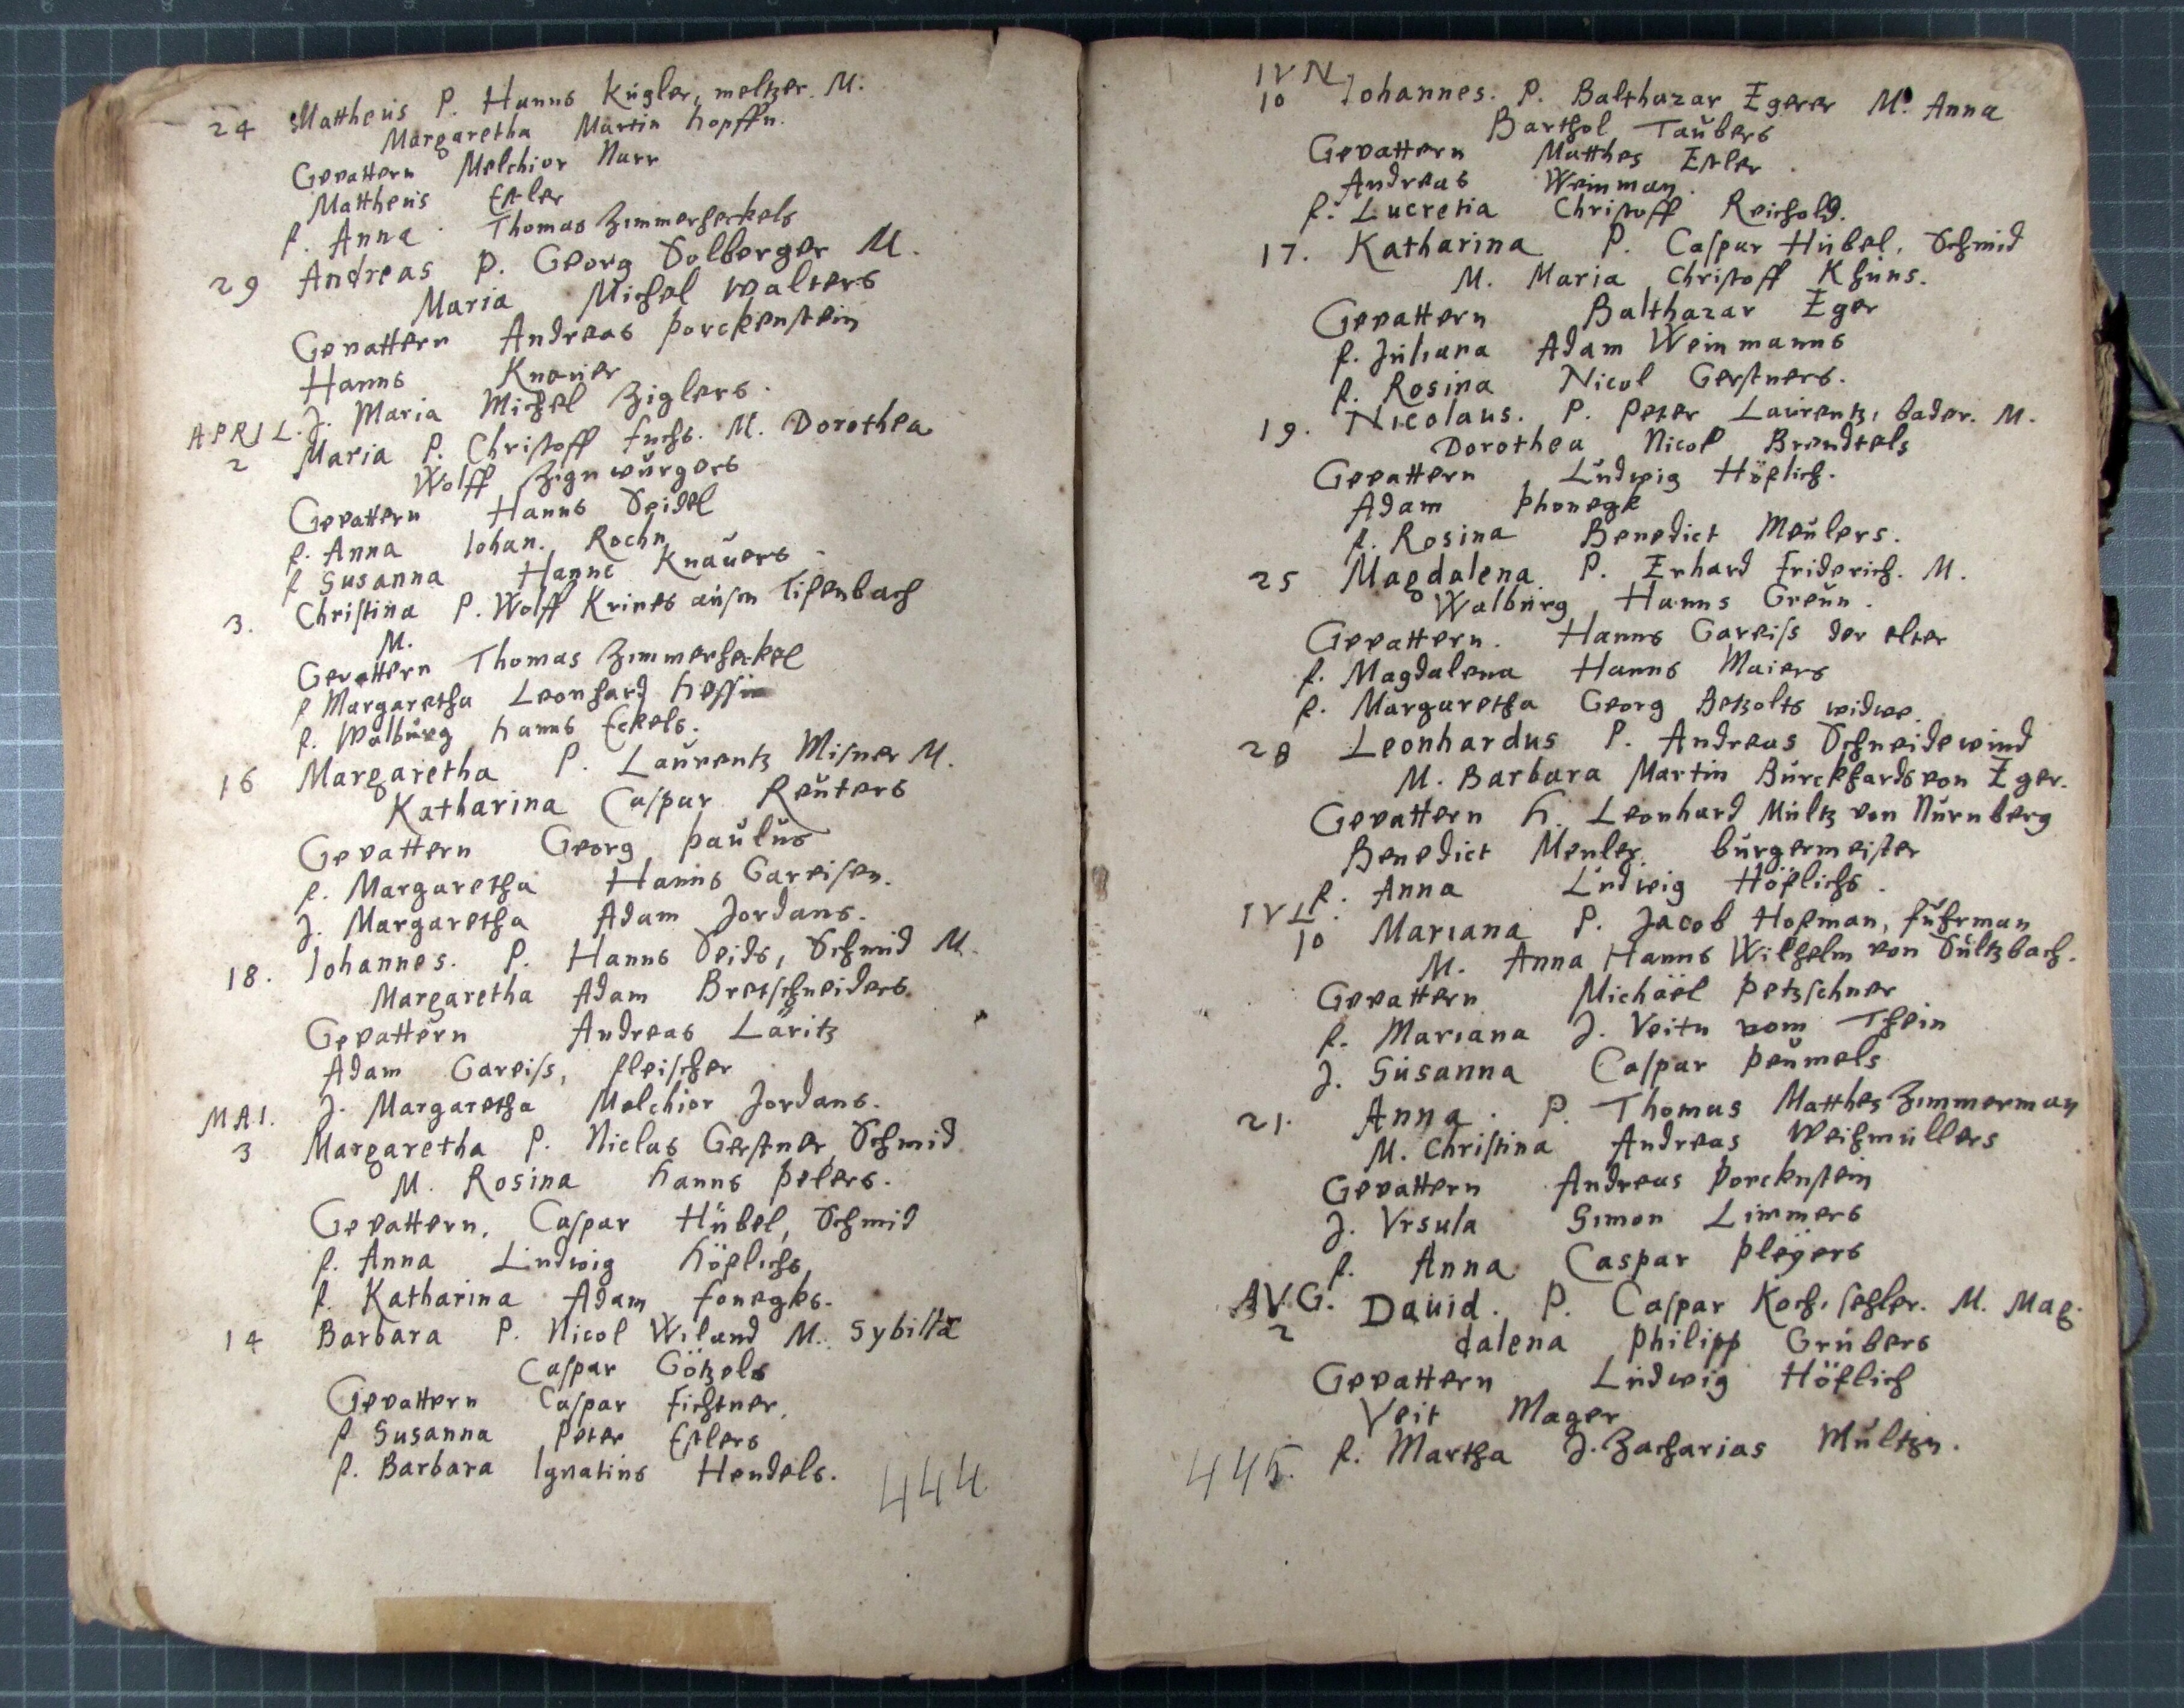 24 Mattheus P. Hanns Kügler, meltzer. M.
Margaretha Martin hopffn.
Gevattern Melchior Narr
Mattheus Ertler
f. Anna Thomas Zimmerheckels
29 Andreas P. Georg Solberger M.
Maria Michel Walters
Gevattern Andreas Porckenstein
Hanns Knauer
J. Maria Michel Ziglers.
APRIL.
2 Maria P. Christoff fuchs. M. Dorothea
Wolff Zignwürgers
Gevattern Hanns Seidel
f. Anna Iohan. Rochn
f Susanna Hanns Knauers
3. Christina P. Wolff Krines ausm Tifenbach
M.
Gevattern Thomas Zimmerheckel
f Margaretha Leonhard
f. Walburg hanns Eckels.
16 Margaretha P. Laurentz Misner M.
Katharina Caspar Reuters
Gevattern Georg Paulus
f. Margaretha Hanns Gareisen.
J. Margaretha Adam Jordans.
18. Iohannes. P. Hanns Seids, Schmid M.
Margaretha Adam Bretschneiders.
Gevattern Andreas Läritz
Adam Gareiss, fleischer
J. Margaretha Melchior Jordans.
MAI.
3 Margaretha P. Niclas Gerstner Schmid
M. Rosina hanns Pelers.
Gevattern. Caspar Hübel, Schmid
f. Anna Ludwig höflichs
f. Katharina Adam fonegks.
14 Barbara P. Nicol Wiland M. Sybilla
Caspar Götzels
Gevattern Caspar Fichtner,
f Susanna Peter Ertlers
f. Barbara Ignatius Hendels.
444
IVN
10 Iohannes. P. Balthazar Egerer M. Anna
Barthol Taubers
Gevattern Matthes Ertler
Andreas Weinman.
f. Lucretia Christoff Reichold.
17. Katharina P. Caspar Hübel, Schmid
M. Maria Christoff Khüns.
Gevattern Balthazar Eger
f. Juliana Adam Weinmanns
f. Rosina Nicol Gerstners.
19. Nicolaus. P. Peter Laurentz, bader. M.
Dorothea Nicol Brendtels
Gevattern Ludwig Höflich.
Adam Phonegk
f. Rosina Benedict Meulers.
25 Magdalena P. Erhard Friderich. M.
Walburg Hanns Greun.
Gevattern. Hanns Gareiss der elter
f. Magdalena Hanns Maiers
f. Margaretha Georg Betzolts widwe.
28 Leonhardus P. Andreas Schneidewind
M. Barbara Martin Burckhards von Eger.
Gevattern h. Leonhard Mültz von Nürnberg
Benedict Meuler burgermeister
f. Anna Ludwig Höflichs.
IVL.
10 Mariana P. Jacob Hofman, fuhrman
M. Anna Hanns Wilhelm von Sultzbach.
Gevattern Michäel Petzschner
f. Mariana J. Veitn vom Thein
J. Susanna Caspar Peumels
21. Anna. P. Thomas Matthes Zimmerman
M. Christina Andreas Weihmüllers
Gevattern Andreas Porcknstein
J. Vrsula Simon Limmers
f. Anna Caspar Pleÿers
AVG.
2 Dauid. P. Caspar Koch, M. Mag-
dalena Philipp Grubers
Gevattern Ludwig Höflich
Veit Mager
f. Martha J. Zacharias Multzn.
445.